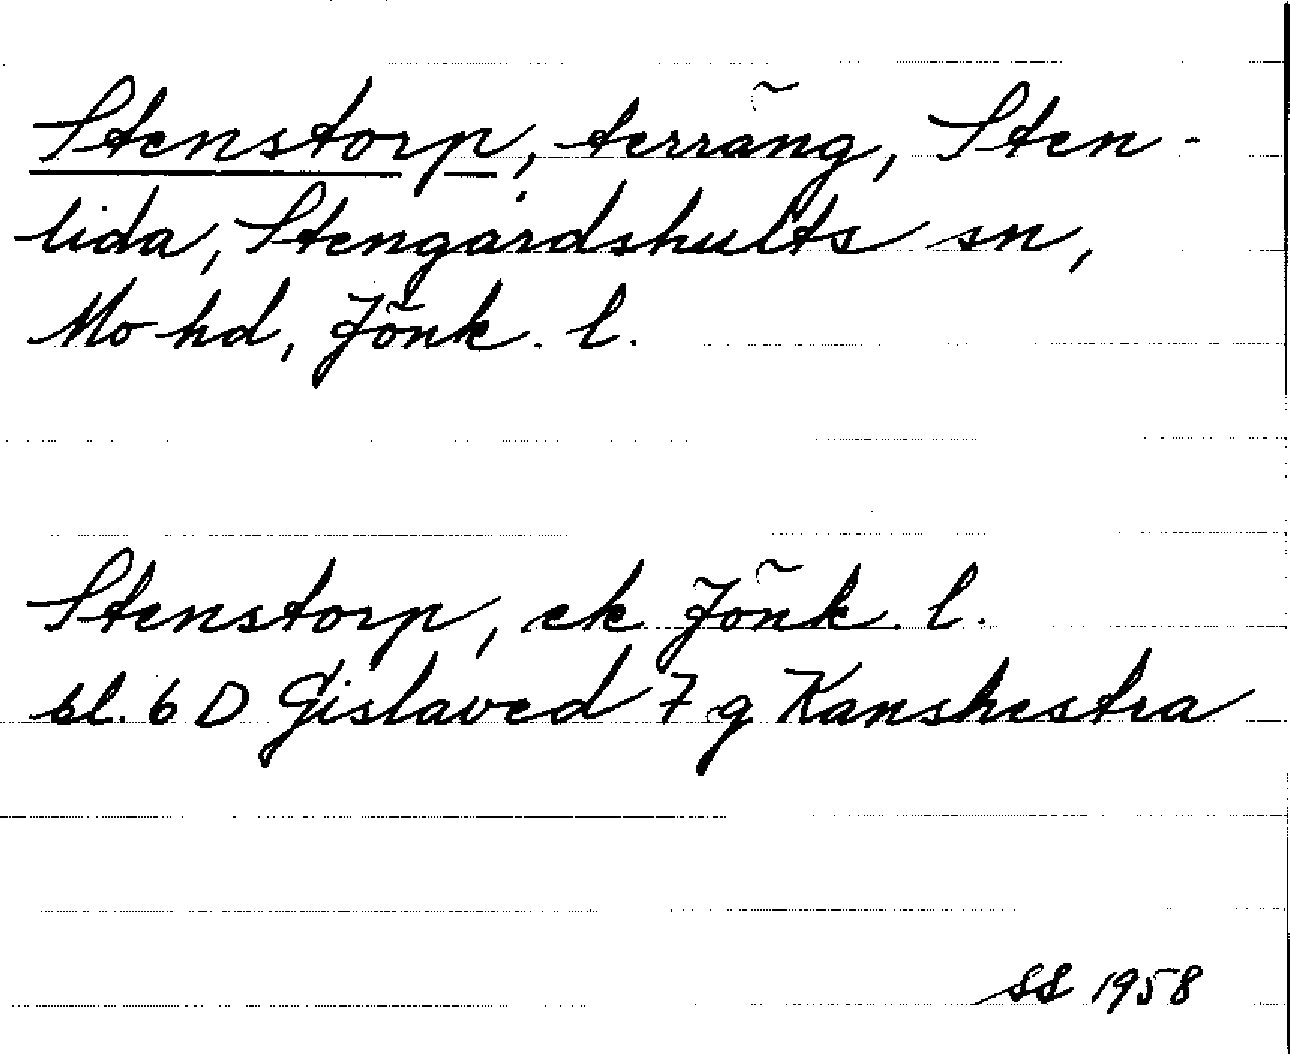 Stenstorp, terräng, Sten-
lida, Stengårdshults sn,
Mo hd, Jönk. l.
Stenstorp, ek Jönk. l.
bl. 6 D Gislaved 7 g Kanshestra
SS 1958